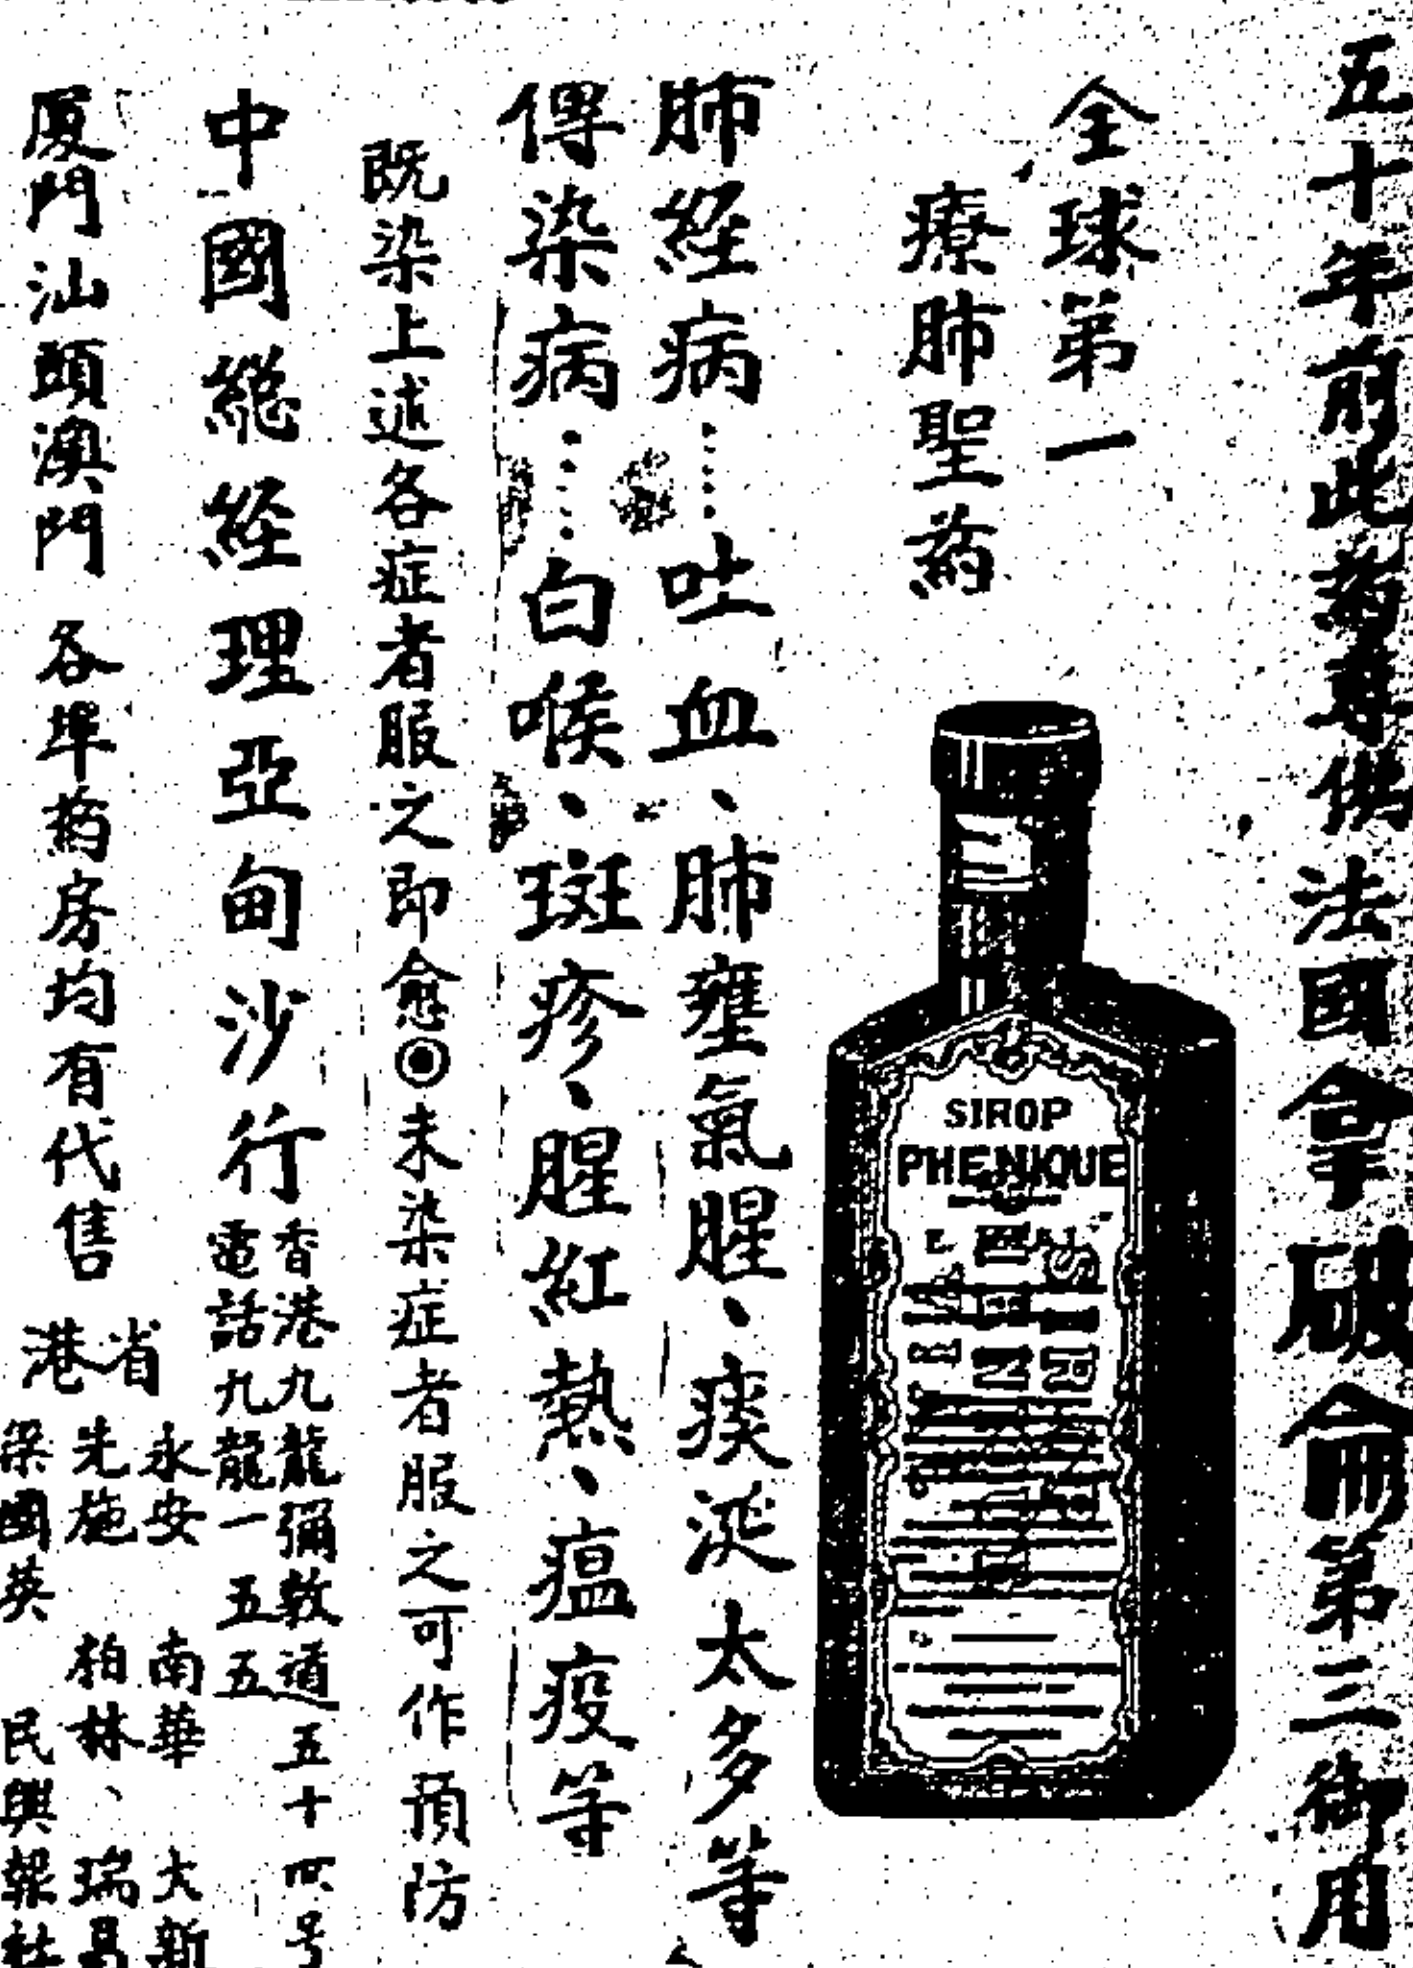 五十年前此药專供法國拿破侖第三御用
全球第一
療肺聖药
SIROP
PHENIQUE
肺経病……吐血、肺壅氣腥、痰涎太多等
傳染病……白喉、斑疹、腥紅熱、瘟疫等
既染上述各症者服之即愈◎未染症者服之可作預防
中國總経理亞甸沙行
香港九龍彌敦道五十四号
電話九龍一五五五
厦門汕頭澳門 各埠药房均有代售
省港
永安 南華 大新
先施 柏林、瑞昌
梁國英 民興報社